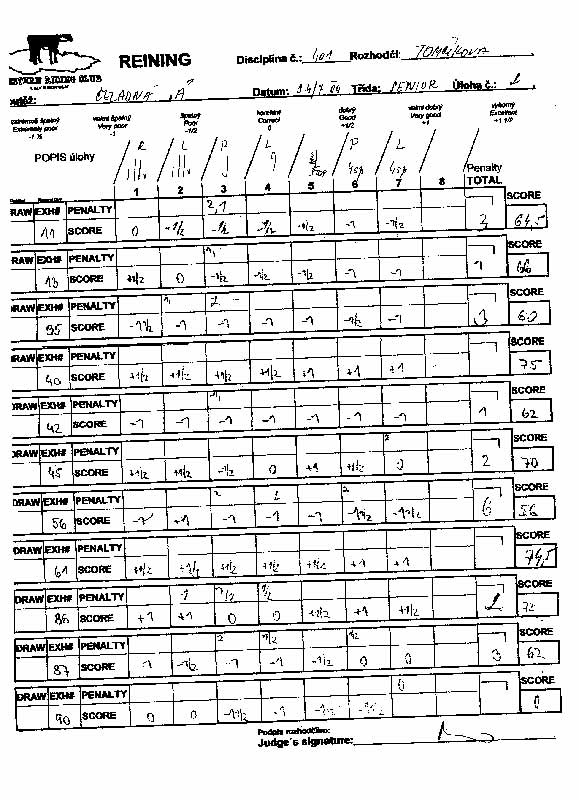 REINING
Disciplina č.: 401 Rozhodčí:
WESTERN RIDING CLUB
Datum: Třída: SENIOR Úloha č.:
velmi špatný špatný korektní dobrý velmi dobrý výborný
Extremely poor Very poor Poor Correct Good Very good Excellent
-1 ½ -1 -1/2 0 +1/2 +1 +1 1/2
POPIS úlohy
R L P L P L
Penalty
1 2 3 4 5 6 7 8 TOTAL SCORE
DRAW EXH# PENALTY 2,1
11 SCORE 0 -1/2 -1/2 -1/2 -1/2 -1 -1/2 3 64,5
DRAW EXH# PENALTY 1 SCORE
13 SCORE +1/2 0 -1/2 -1/2 -1/2 -1 -1 1 66
DRAW EXH# PENALTY 1 2 SCORE
95 SCORE -1 1/2 -1 -1 -1 -1 -1 1/2 -1 3 60
DRAW EXH# PENALTY SCORE
40 SCORE +1/2 +1/2 +1/2 +1/2 +1 +1 +1 75
DRAW EXH# PENALTY 1 SCORE
42 SCORE -1 -1 -1 -1 -1 -1 -1 1 62
DRAW EXH# PENALTY 2 SCORE
45 SCORE +1/2 +1/2 -1/2 0 +1 +1/2 0 2 70
DRAW EXH# PENALTY 2 2 2 SCORE
56 SCORE -1 +1 -1 -1 -1 -1 1/2 -1 1/2 6 56
DRAW EXH# PENALTY SCORE
61 SCORE +1/2 +1/2 +1/2 +1/2 +1/2 +1 +1 74,5
DRAW EXH# PENALTY 1 1/2 1/2 SCORE
86 SCORE +1 +1 0 0 +1/2 +1 +1/2 2 72
DRAW EXH# PENALTY 2 1/2 1/2 SCORE
87 SCORE -1 -1/2 -1 -1 -1/2 0 0 3 62
DRAW EXH# PENALTY 0 SCORE
90 SCORE 0 0 -1 1/2 -1 -1/2 -1/2 0
Podpis rozhodčího:
Judge´s signature: